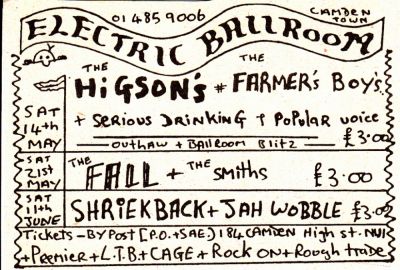 01 485 9006
CAMDEN TOWN
ELECTRIC BALLROOM
SAT 14th MAY
THE HiGSON's * THE FARMER's BOY's
+ SERiOUS DRiNKiNG + POPuLAR voice
OUTHAW + BAllRooM BLitZ £3.00
SAT 21st MAY
THE FALL + THE SMiths £3.00
SAT 11th JUNE
SHRiEKBACK + JAH WoBBLE £3.00
Tickets - BY Post [P.O. + SAE.] 184 CAMDEN High st. NW1
+ PREMiER + L.T.B + CAGE + ROCK ON + ROugh tRADE